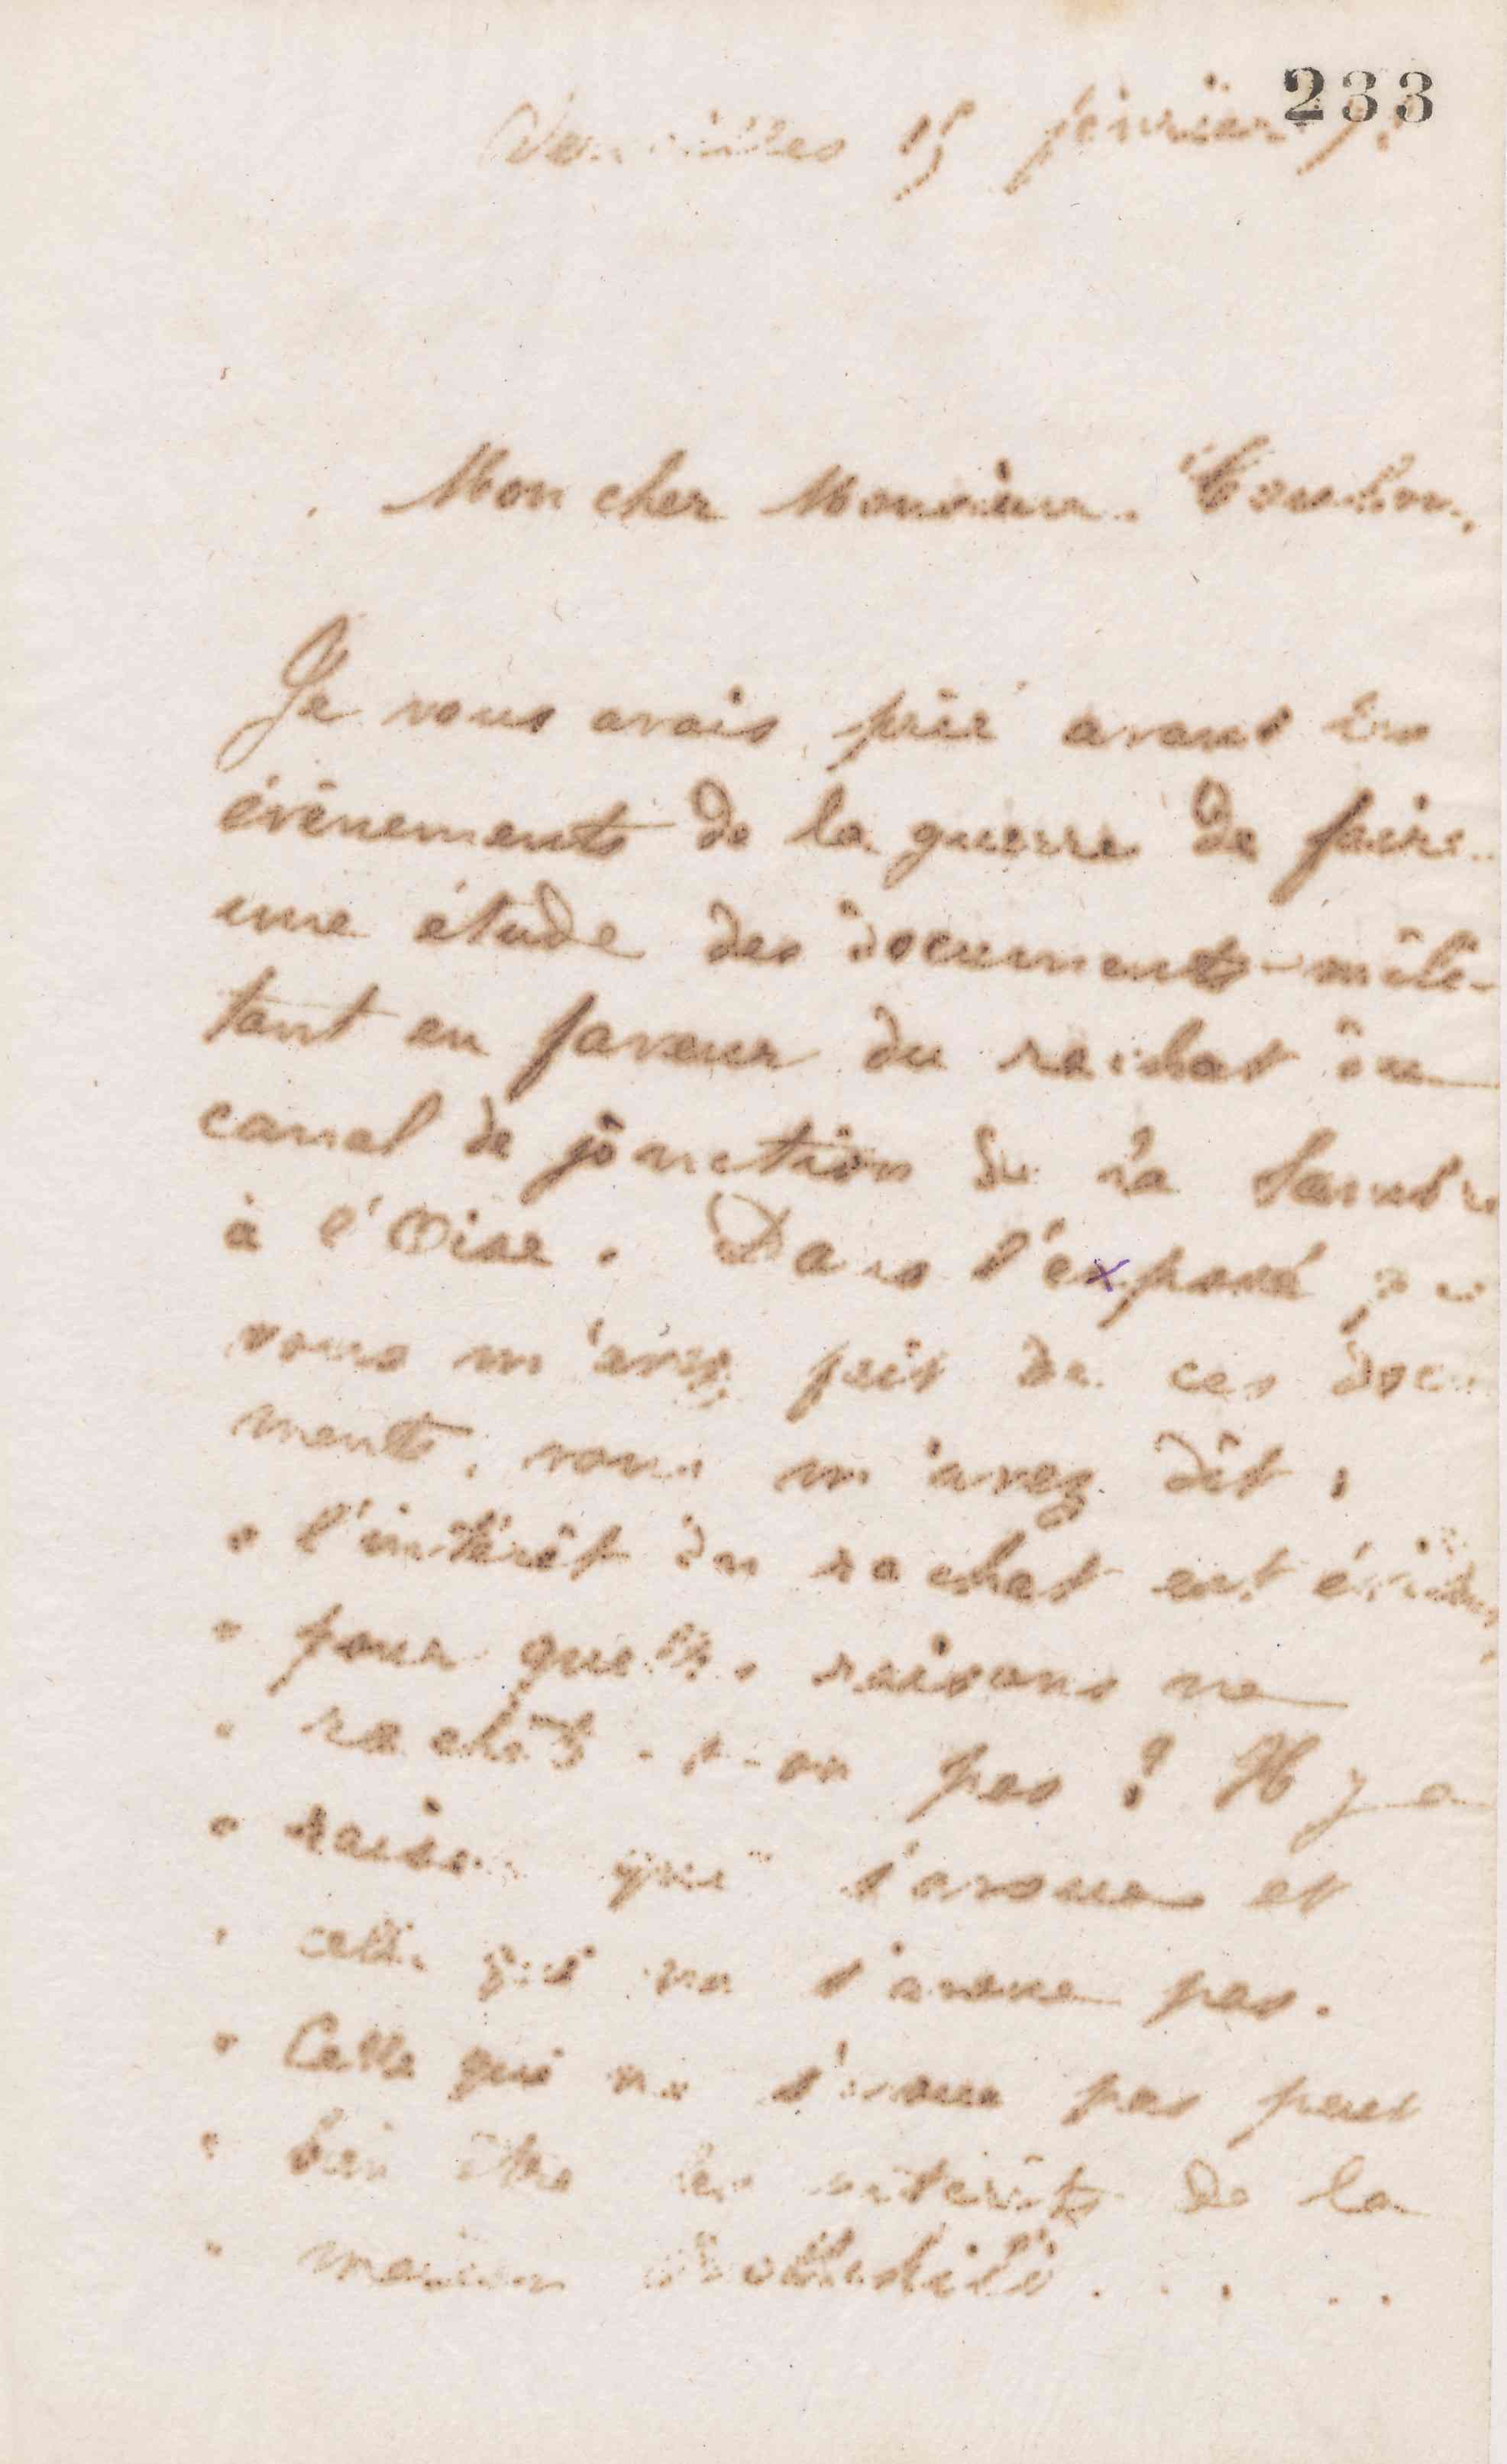 233
Versailles 15 février 7
Mon cher Monsieur
Je vous avais prié avant les
événements de la guerre de faire
une étude des documents mili-
tant en faveur du rachat du
canal de jonction de la Sambre
à l'Oise. Dans l'exposé que
vous m'avez fait de ces docu
ments, vous m'avez dit,
" l'intérêt du rachat est évident,
" pour quelles raisons ne
" rachète-t-on pas ? Il y a
" raison qui s'avoue et
" celle qui ne s'avoue pas.
" Celle qui ne s'avoue pas peut
" bien être les intérêts de la
" maison Rothschild . . . .